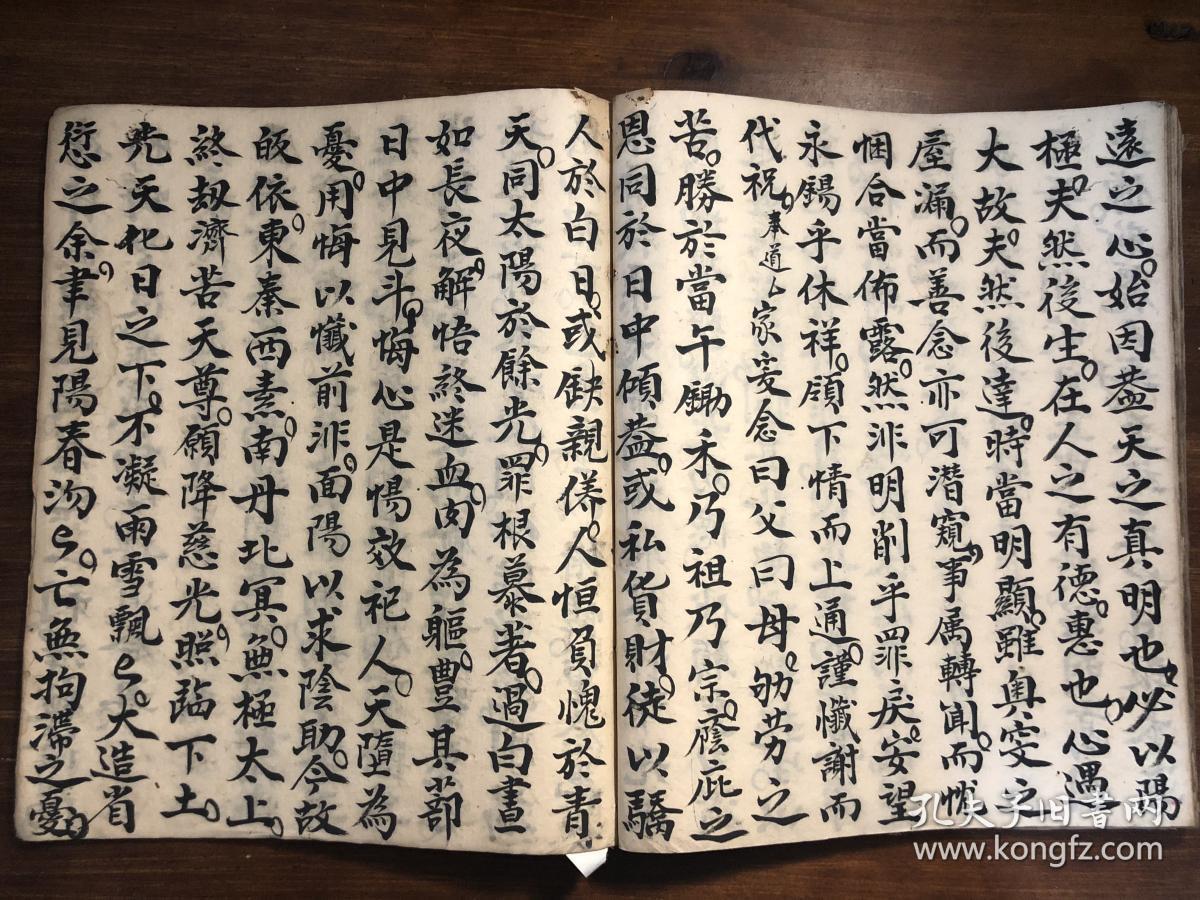 遠之心。始因葢天之真明也。必以陽
極。夫然後生。在人之有德惠也。心遇
大故。夫然後達。時當明顯。雖奥突之
屋漏。而善念亦可潜窺。事属轉闻。而忱
悃合當佈露。然非明削乎罪戾。安望
永錫乎休祥。領下情而上通。謹懺謝而
代祝。奉道厶家妄念曰父曰母。劬劳之
苦。勝於當午鋤禾。乃祖乃宗。廕庇之
恩同於日中傾葢。或私貨財。徒以驕
人於白日。或缺親侍。人恒負愧於青
天。同太陽於餘光。罪根暴著。過白晝
如長夜。解悟終迷。血肉為軀。豊其蔀
日中見斗。悔心是惕。效祀人。天墮為
憂。用悔以懺前非。面陽以求陰助。今故
皈依。東秦西素。南丹北冥。無極太上。
終刼濟苦天尊。願降慈光。照臨下土。
堯天化日之下。不凝雨雪飄乙。大造省
愆之余。聿見陽春沕乙。亡無拘滯之憂。
孔夫子旧书网
www.kongfz.com